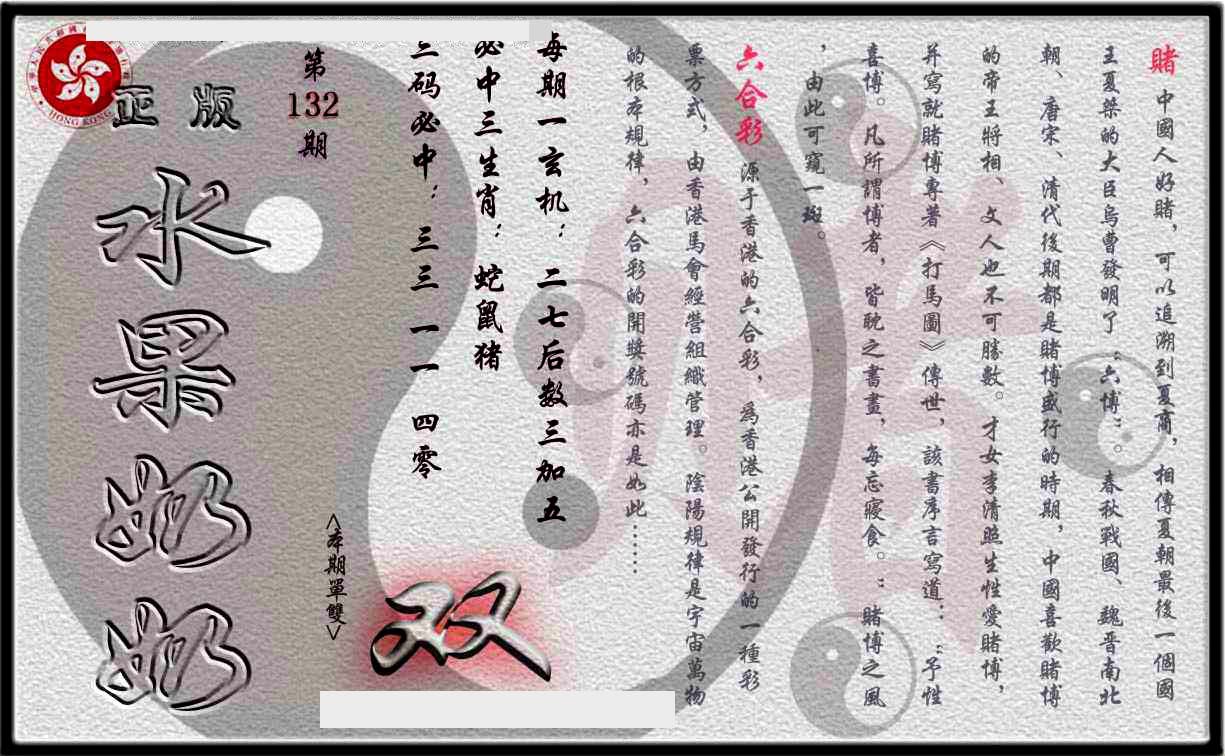 賭 中國人好賭，可以追溯到夏商，相傳夏朝最後一個國
王夏桀的大臣烏曹發明了“六博”。春秋戰國、魏晋南北
朝、唐宋、清代後期都是賭博盛行的時期，中國喜歡賭博
的帝王將相、文人也不可勝數。才女李清照生性愛賭博，
并寫就賭博專著《打馬圖》傳世，該書序言寫道：“予性
喜博。凡所謂博者，皆耽之書畫，每忘寢食。”賭博之風
，由此可窺一斑。
六合彩 源于香港的六合彩，爲香港公開發行的一種彩
票方式，由香港馬會經營組織管理。陰陽規律是宇宙萬物
的根本規律，六合彩的開獎號碼亦是如此……
每期一玄机：二七后数三加五
必中三生肖：蛇鼠猪
三码必中：三三 一一 四零
双
<本期單雙>
第
132
期
正版
水果奶奶
HONG KONG